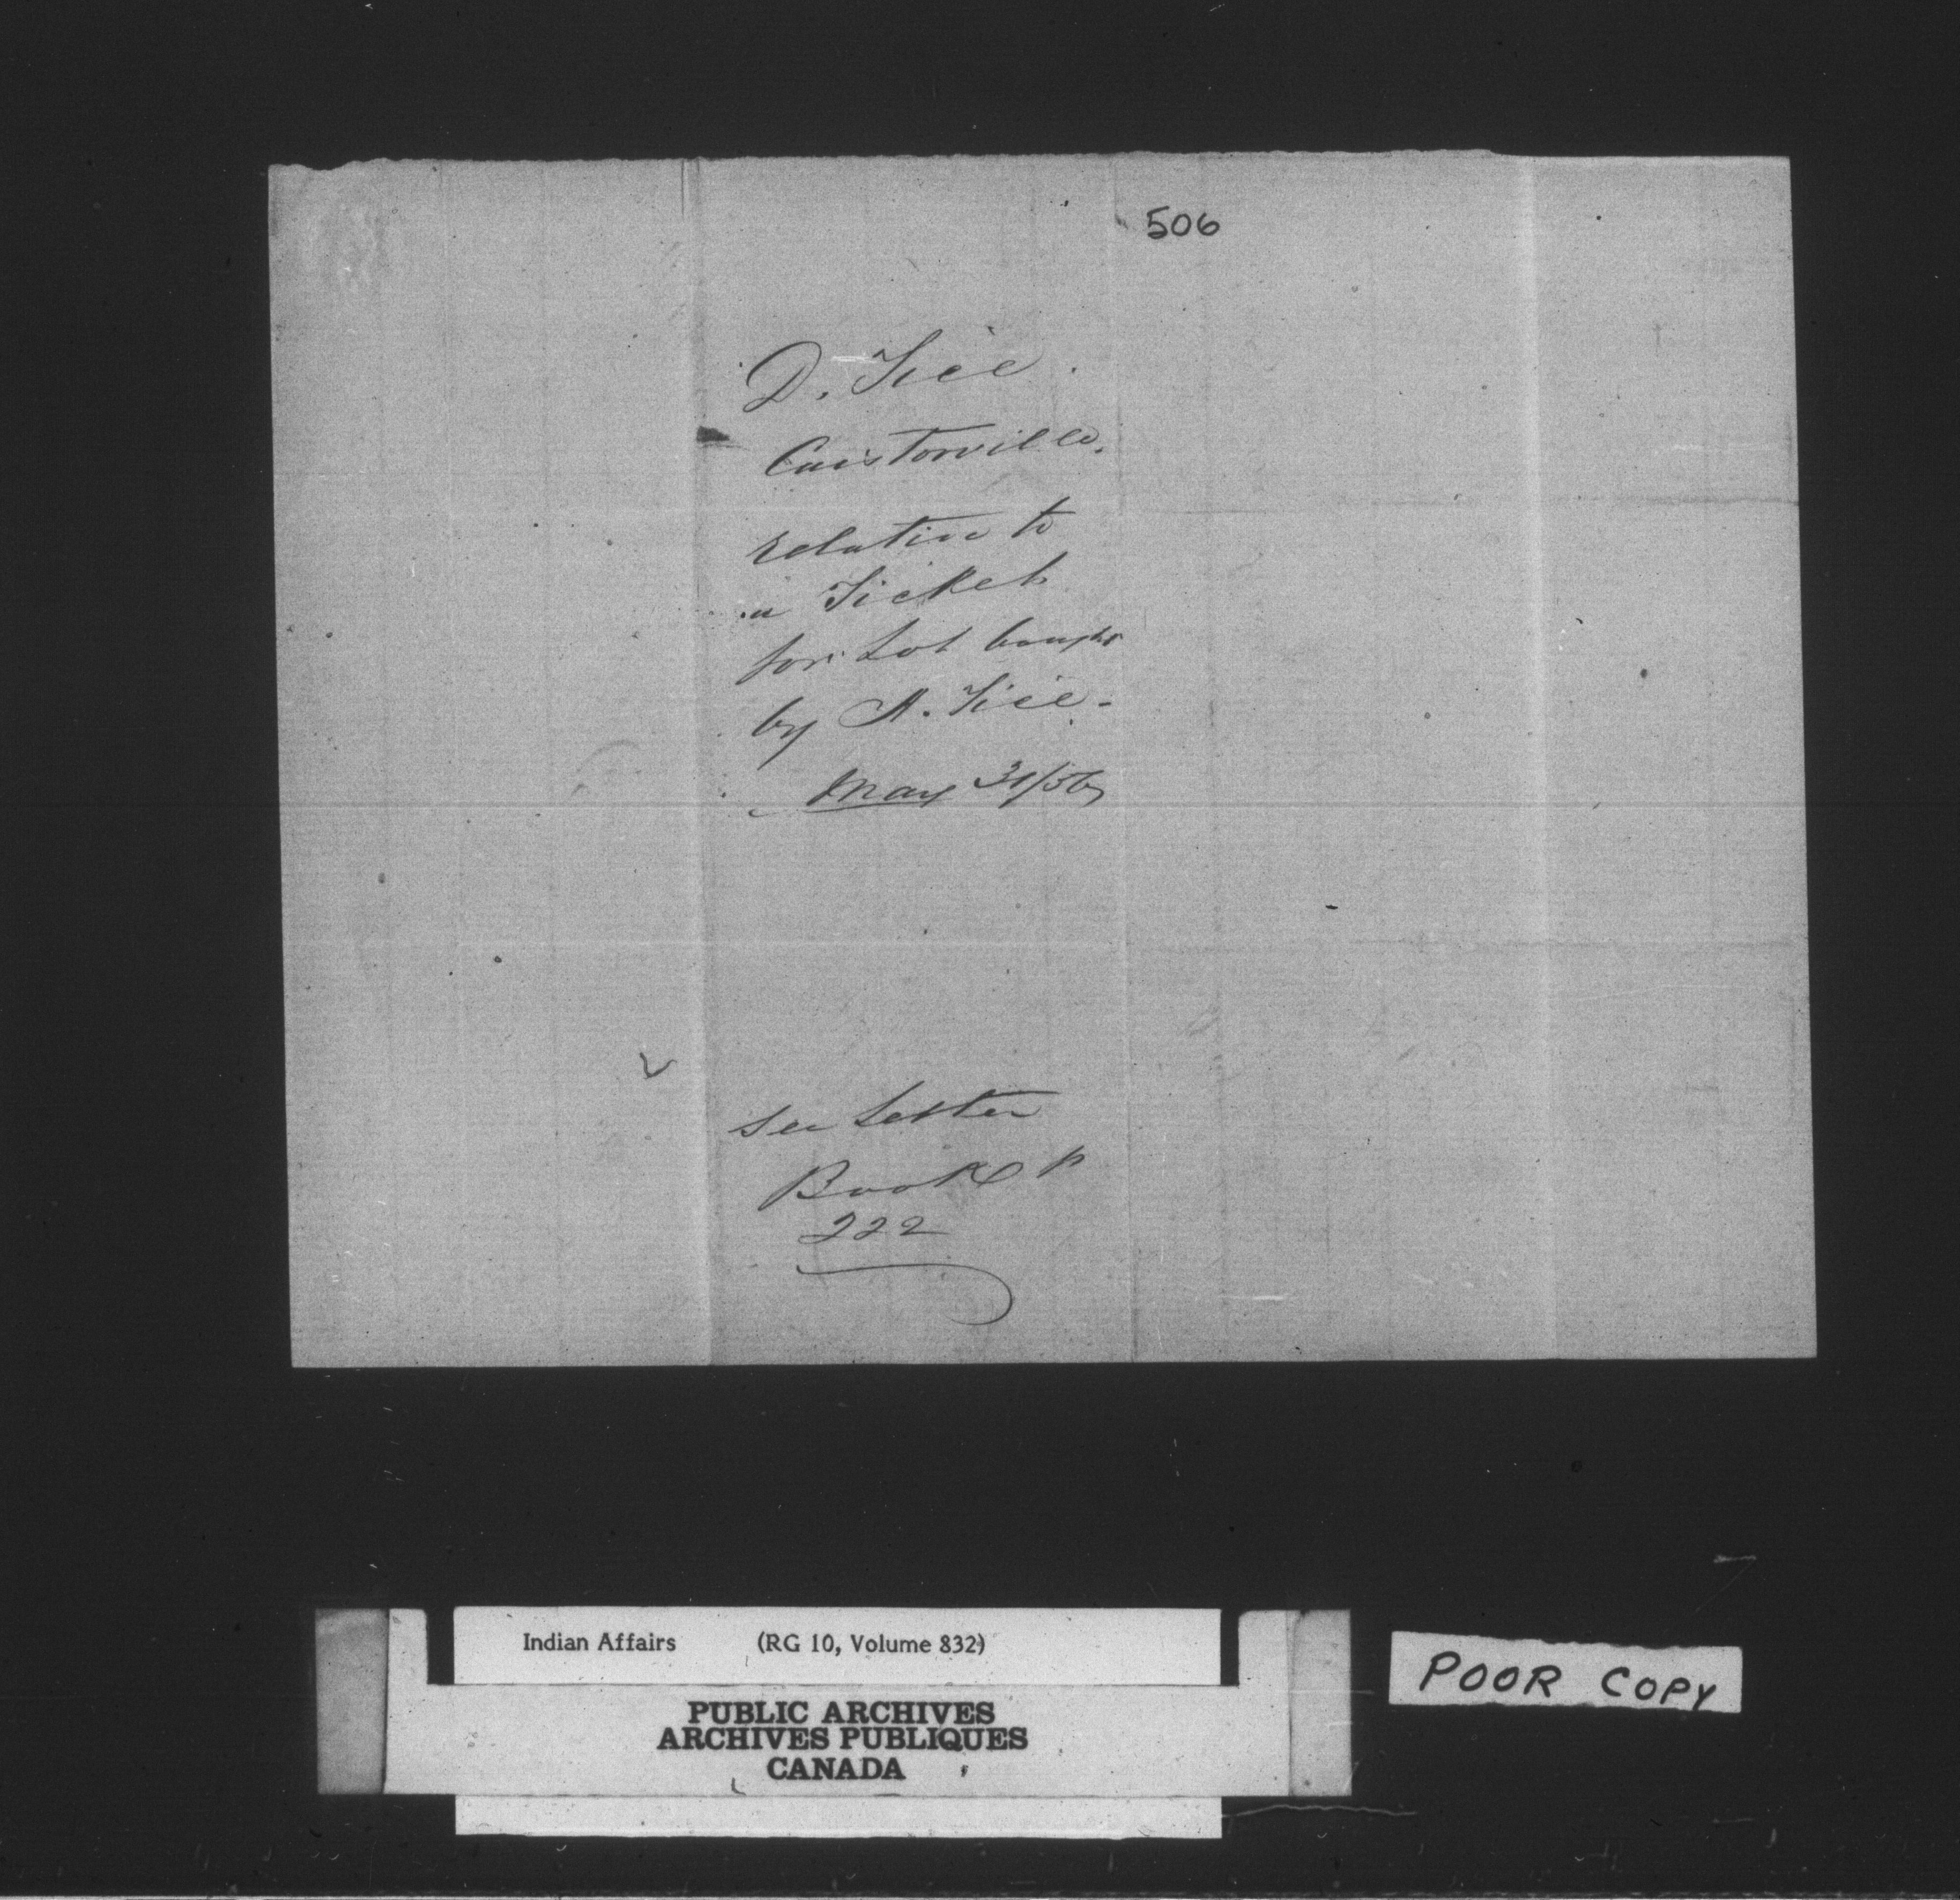 506
D. Tice.
Caistorville.
relative to
a Ticket
for Lot bought
by A. Tice.
May 31/56
See Letter
Book p
222
Indian Affairs (RG 10, Volume 832)
PUBLIC ARCHIVES
ARCHIVES PUBLIQUES
CANADA
POOR COPY